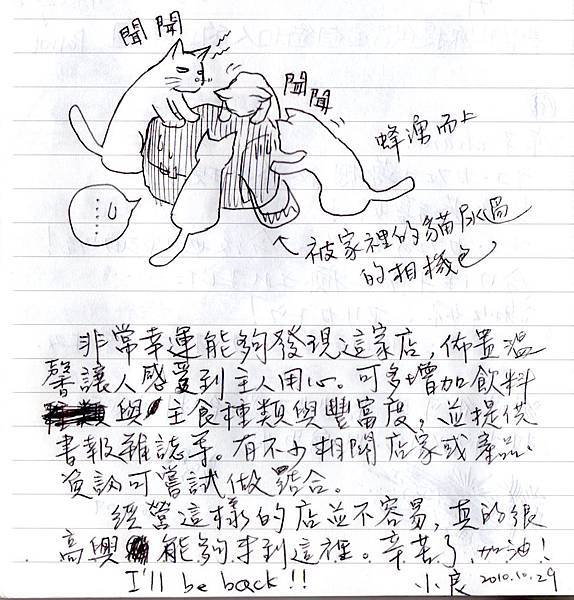 聞聞
聞聞
蜂湧而上
被家裡的貓尿過
的相機包
非常幸運能夠發現這家店,佈置溫
馨讓人感受到主人用心。可多增加飲料
與主食種類與豐富度,並提供
書報雜誌等。有不少相關店家或產品
資訊可嘗試做點結合。
經營這樣的店並不容易,真的很
高興能夠來到這裡。辛苦了,加油!
I'll be back!!
小良 2010.10.29